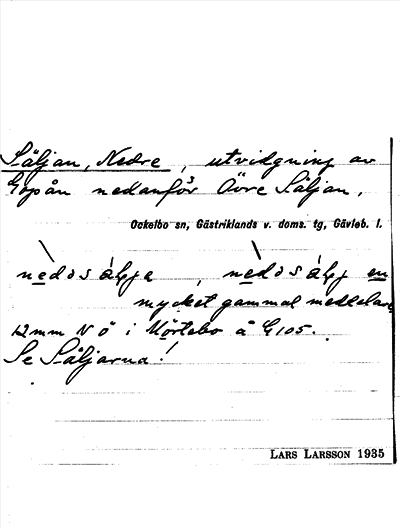 Säljan, Nedre, utvidgning av
Gopån nedanför Övre Säljan.
Ockelbo sn, Gästriklands v. doms. tg, Gävleb. l.
nèdɔsálja, nèdɔsálj en
mycket gammal meddelare
12 mm N Ö i Mörtebo å G 105.
Se Säljarna!
LARS LARSSON 1935